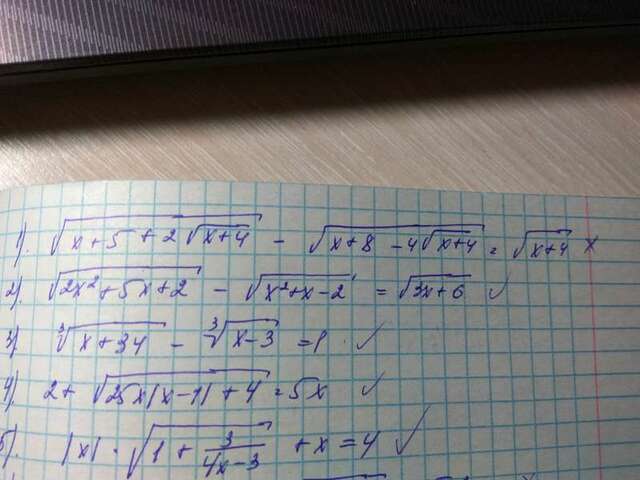 1). √(x+5+2√(x+4)) - √(x+8-4√(x+4)) = √(x+4) x
2). √(2x²+5x+2) - √(x²+x-2) = √(3x+6) ✓
3) ∛(x+34) - ∛(x-3) = 1 ✓
4). 2+ √(25x|x-1|+4) = 5x ✓
5). |x| · √(1 + 3/(4x-3)) + x = 4 ✓